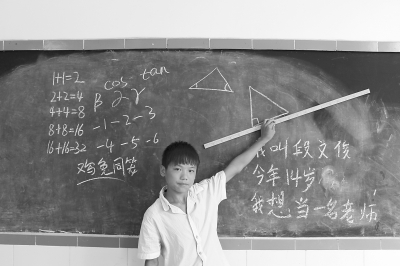 1+1=2
2+2=4
4+4=8
8+8=16
16+16=32
cos tan
β 2 γ
-1-2-3
-4-5-6
鸡兔同笼
我叫段文俊
今年14岁
我想当一名老师